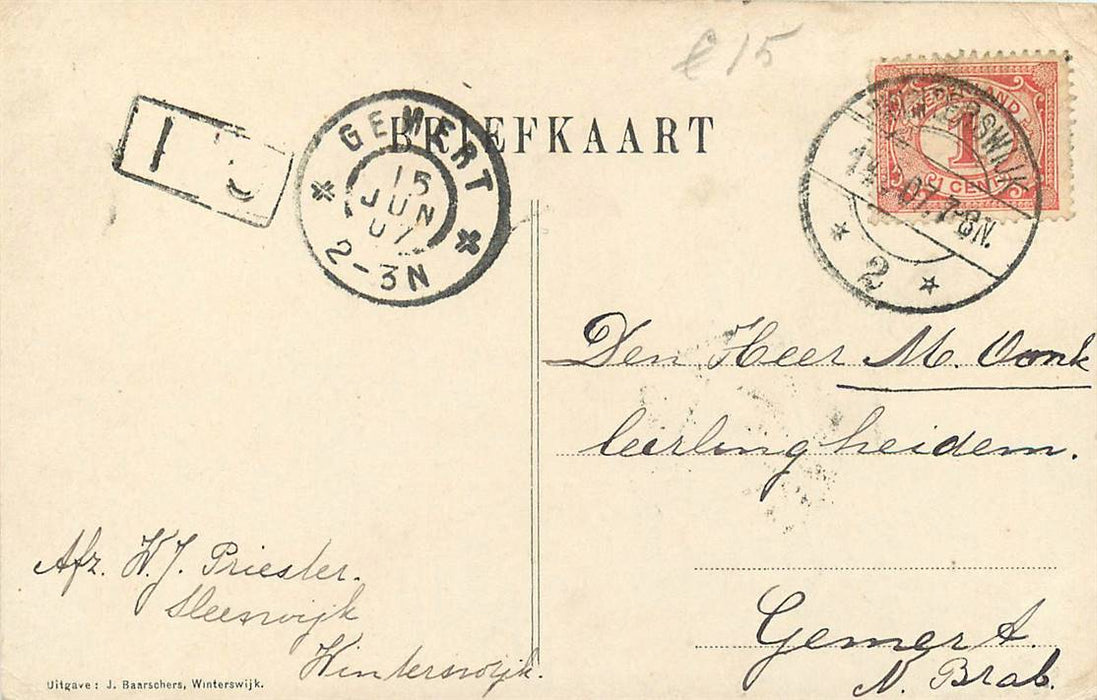 € 15
BRIEFKAART
GEMERT
15
JUN
07
2-3N
NEDERLAND
1
1 CENT
WINTERSWIJK
07.7-8N.
2
Den Heer M. Oonk
leerling heidem.
Gemert.
N. Brab.
Afz. W.J. Priester.
Sleeswijk
Winterswijk.
Uitgave: J. Baarschers, Winterswijk.